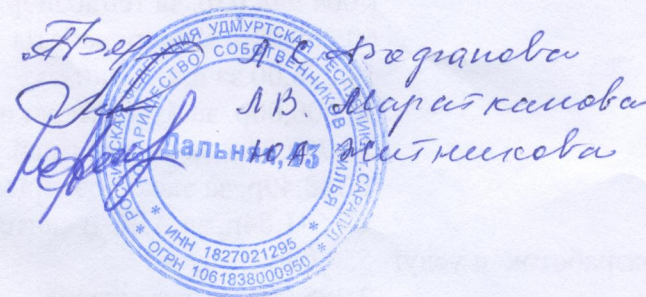 А С Водганова
Л В Мараткanova
Ю А Житникова
РОССИЙСКАЯ ФЕДЕРАЦИЯ УДМУРТСКАЯ РЕСПУБЛИКА Г.САРАПУЛ
ТОВАРИЩЕСТВО СОБСТВЕННИКОВ ЖИЛЬЯ
Дальняя,
* ИНН 1827021295 *
* ОГРН 1061838000950 *